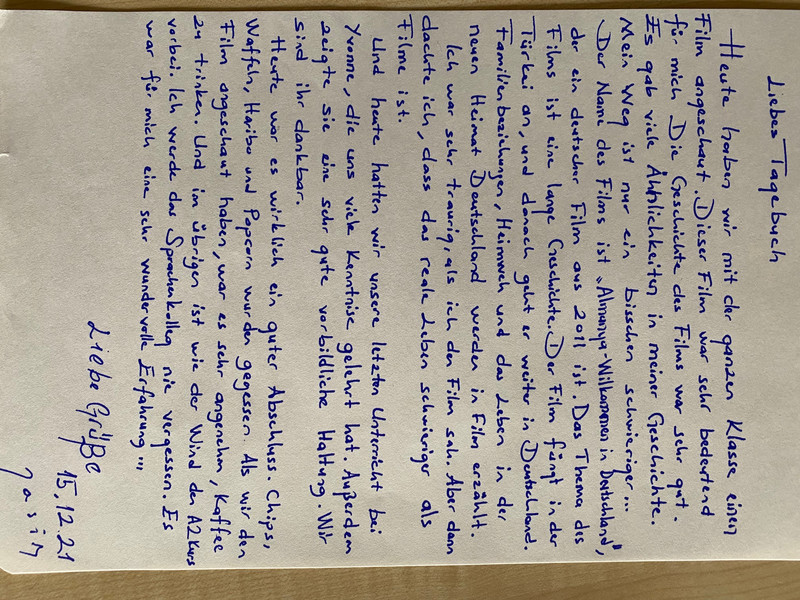 Liebes Tagebuch
Heute haben wir mit der ganzen Klasse einen
Film angeschaut. Dieser Film war sehr bedeutend
für mich Die Geschichte des Films war sehr gut.
Es gab viele Ähnlichkeiten in meiner Geschichte.
Mein Weg ist nur ein bisschen schwieriger...
Der Name des Films ist „Almanya-Willkommen in Deutschland",
der ein deutscher Film aus 2011 ist. Das Thema des
Films ist eine lange Geschichte. Der Film fängt in der
Türkei an, und danach geht er weiter in Deutschland.
Familienbeziehungen, Heimweh und das Leben in der
neuen Heimat Deutschland werden in Film erzählt.
Ich war sehr traurig, als ich den Film sah. Aber dann
dachte ich, dass das reale Leben schwieriger als
Filme ist.
Und heute hatten wir unsere letzten Unterricht bei
Yvonne, die uns viele Kenntnise gelehrt hat. Außerdem
zeigte sie eine sehr gute vorbildliche Haltung. Wir
sind ihr dankbar.
Heute war es wirklich ein guter Abschluss. Chips,
Waffeln, Haribo und Popcorn wurden gegessen. Als wir den
Film angeschaut haben, war es sehr angenehm, Kaffee
zu trinken. Und im übrigen ist wie der Wind der A2 Kurs
vorbei. Ich werde das Sprachenkolleg nie vergessen. Es
war für mich eine sehr wundervolle Erfahrung...
Liebe Grüße
15.12.21
Yasin